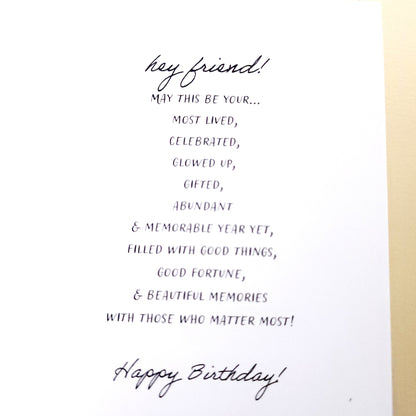 hey friend!
MAY THIS BE YOUR...
MOST LIVED,
CELEBRATED,
GLOWED UP,
GIFTED,
ABUNDANT
& MEMORABLE YEAR YET,
FILLED WITH GOOD THINGS,
GOOD FORTUNE,
& BEAUTIFUL MEMORIES
WITH THOSE WHO MATTER MOST!
Happy Birthday!